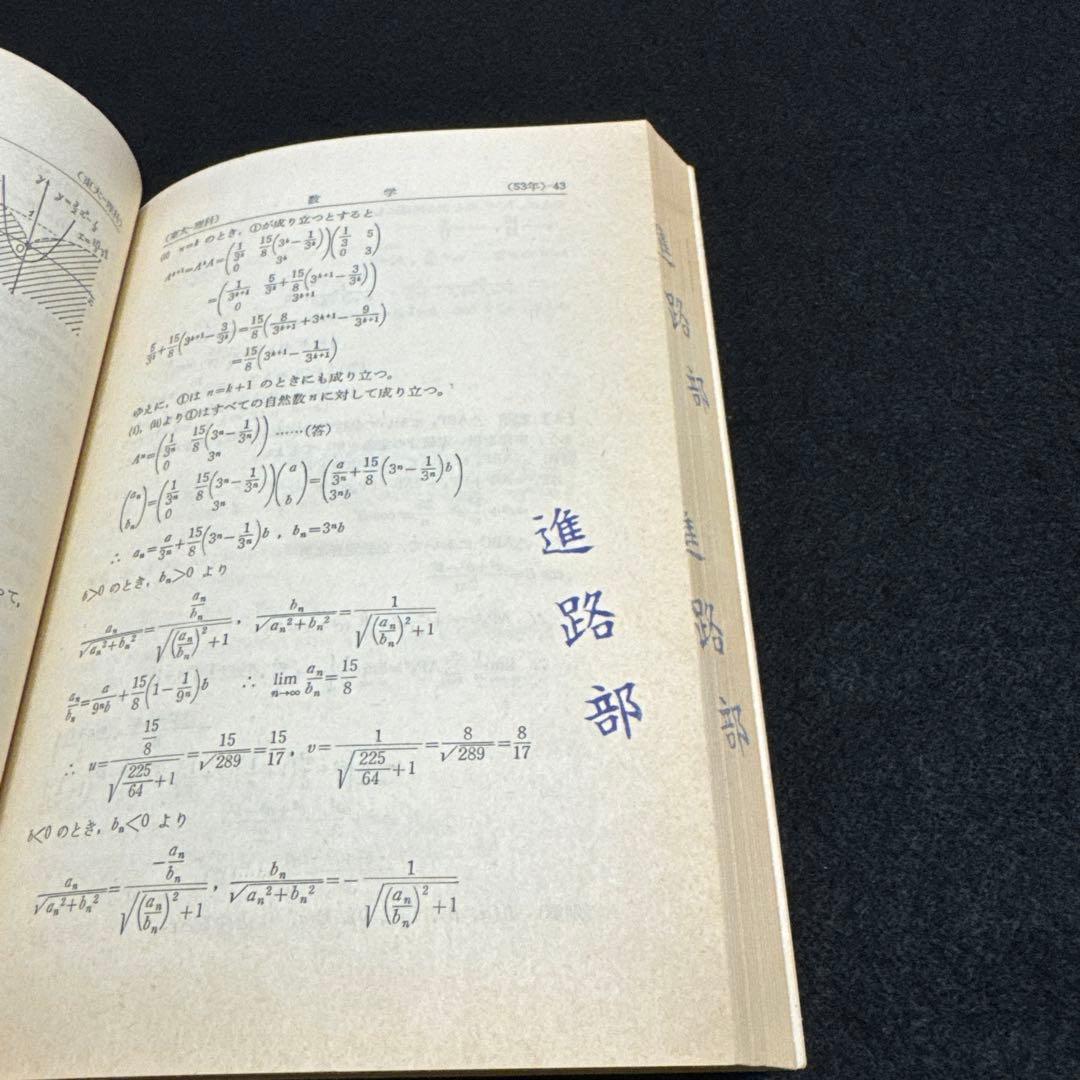 (東大-理科)
y
y=
数 学
(53年)-43
(東大-理科)
(i) n=k のとき, ①が成り立つとすると
A^{k+1}=A^kA=(1/3^k 15/8(3^k-1/3^k) 0 3^k)(1/3 5 0 3)
=(1/3^{k+1} 5/3^k+15/8(3^{k+1}-3/3^k) 0 3^{k+1})
5/3^k+15/8(3^{k+1}-3/3^k)=15/8(8/3^{k+1}+3^{k+1}-9/3^{k+1})
=15/8(3^{k+1}-1/3^{k+1})
ゆえに, ①は n=k+1 のときにも成り立つ。
(i), (ii)より①はすべての自然数 n に対して成り立つ。
A^n=(1/3^n 15/8(3^n-1/3^n) 0 3^n)……(答)
(a_n b_n)=(1/3^n 15/8(3^n-1/3^n) 0 3^n)(a b)=(a/3^n+15/8(3^n-1/3^n)b 3^nb)
∴ a_n=a/3^n+15/8(3^n-1/3^n)b , b_n=3^nb
b>0 のとき, b_n>0 より
a_n/√(a_n²+b_n²)=(a_n/b_n)/√((a_n/b_n)²+1) , b_n/√(a_n²+b_n²)=1/√((a_n/b_n)²+1)
a_n/b_n=a/9^nb+15/8(1-1/9^n)b ∴ lim_{n→∞} a_n/b_n=15/8
∴ u=(15/8)/√(225/64+1)=15/√289=15/17, v=1/√(225/64+1)=8/√289=8/17
b<0 のとき, b_n<0 より
a_n/√(a_n²+b_n²)=(-a_n/b_n)/√((a_n/b_n)²+1) , b_n/√(a_n²+b_n²)=-1/√((a_n/b_n)²+1)
進路部
進路部
進路部